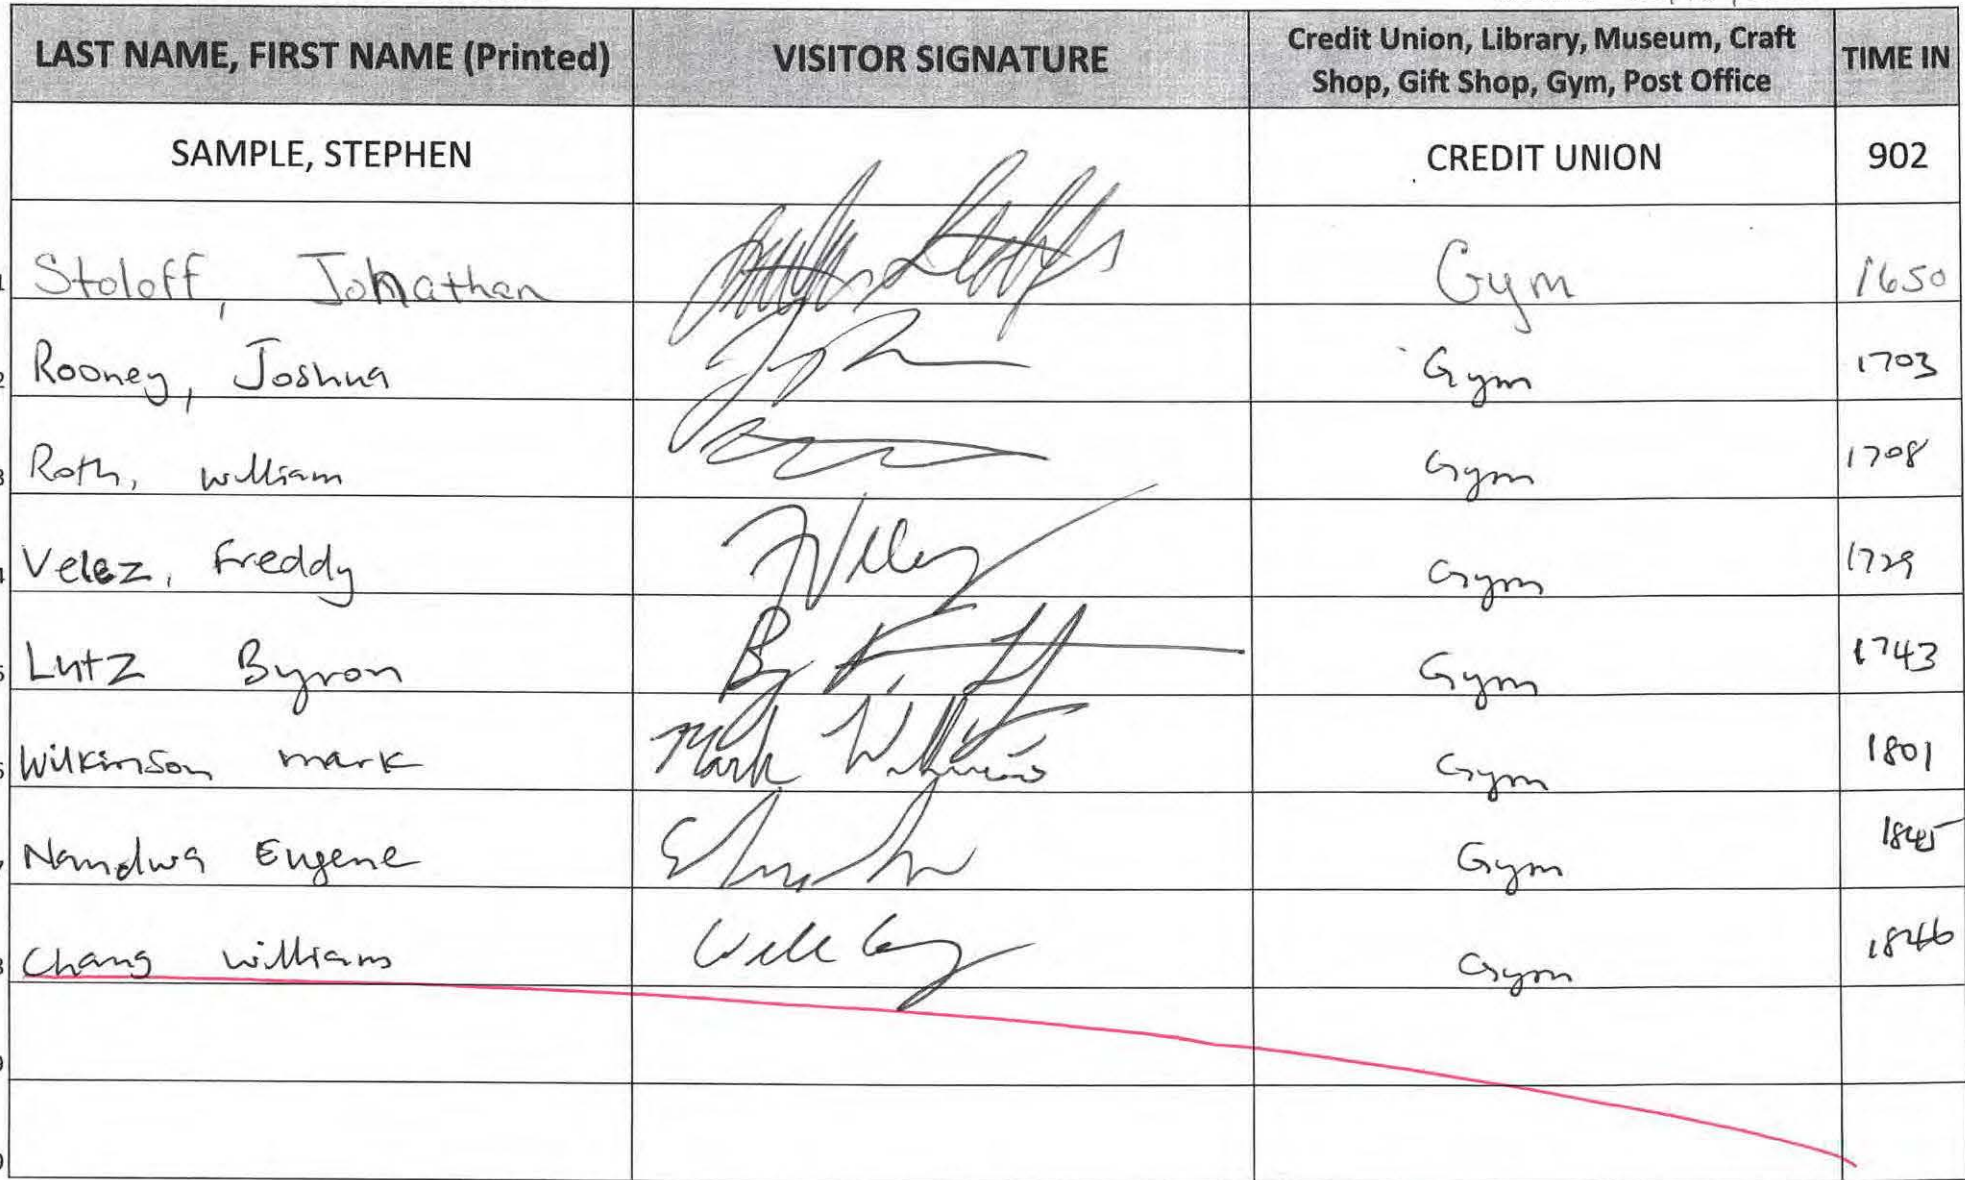 LAST NAME, FIRST NAME (Printed) VISITOR SIGNATURE Credit Union, Library, Museum, Craft Shop, Gift Shop, Gym, Post Office TIME IN
SAMPLE, STEPHEN CREDIT UNION 902
Stoloff, Johnathan Gym 1650
Rooney, Joshua Gym 1703
Roth, William Gym 1708
Velez, Freddy Gym 1729
Lutz Byron Gym 1743
Wilkinson mark Mark Gym 1801
Nandwa Eugene Gym 1845
Chang William Gym 1846